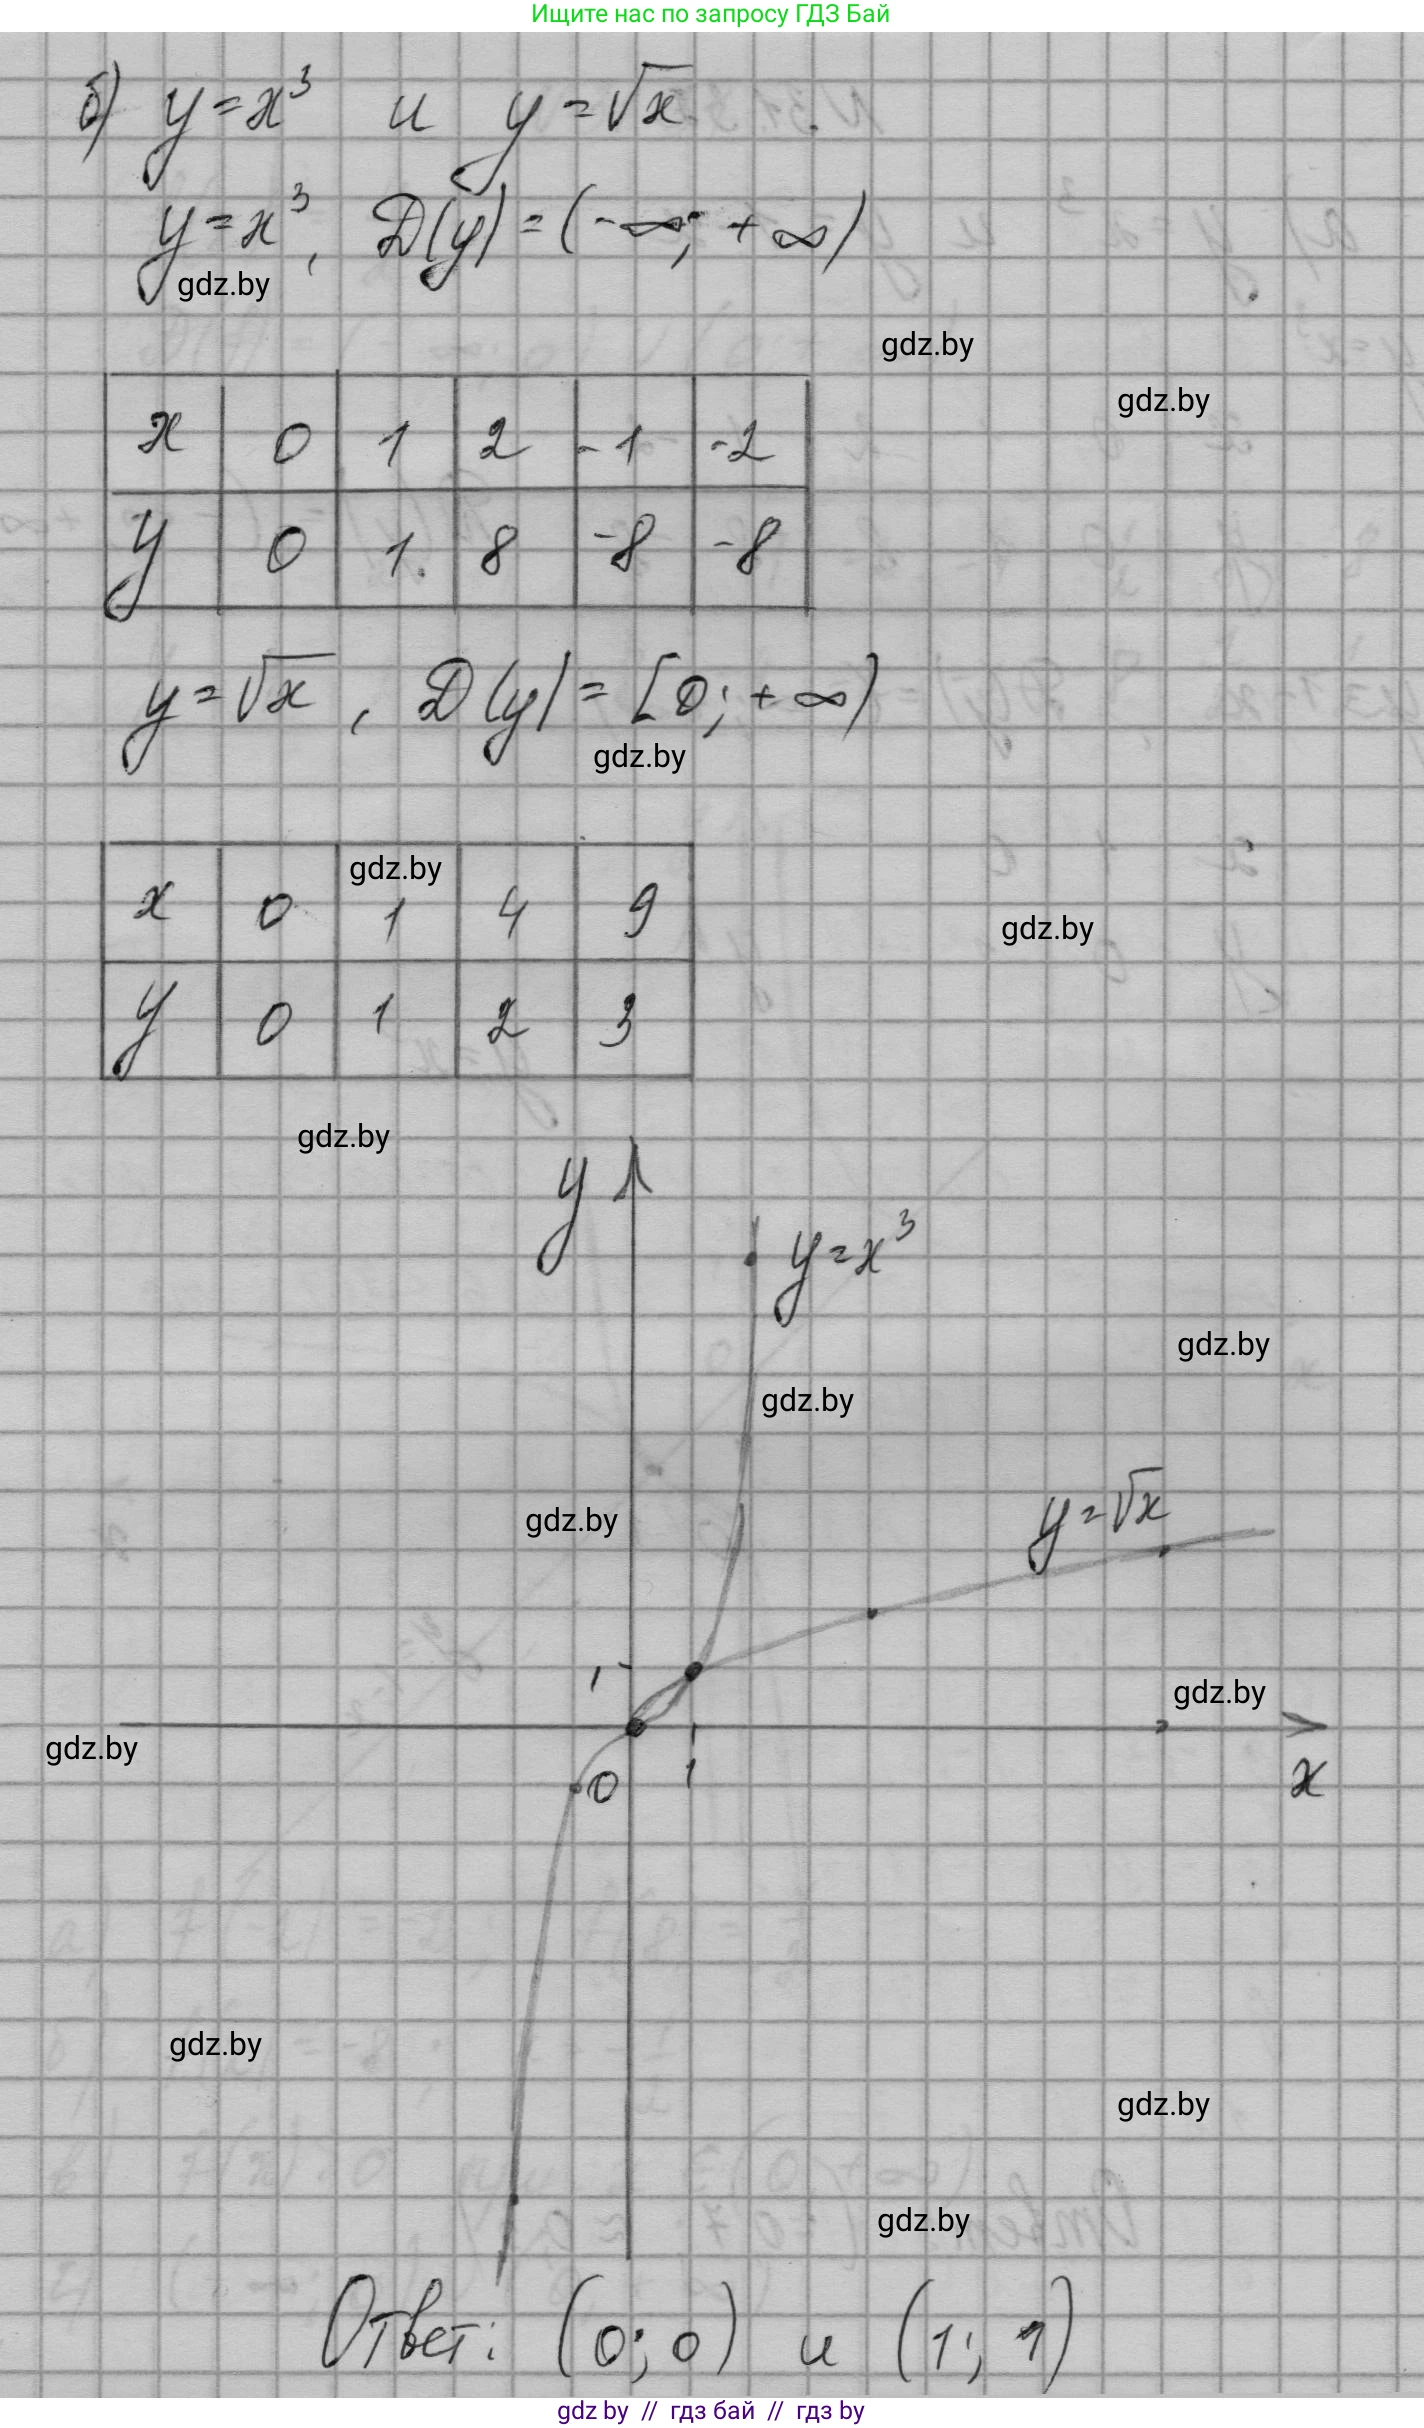 Ищите нас по запросу ГДЗ Бай
б) y=x³ и y=√x
y=x³, D(y)=(-∞; +∞)
gdz.by
gdz.by
gdz.by
x 0 1 2 -1 -2
y 0 1 8 -8 -8
y=√x, D(y)=[0; +∞)
gdz.by
gdz.by
x 0 1 4 9
gdz.by
y 0 1 2 3
gdz.by
y
y=x³
gdz.by
gdz.by
y=√x
gdz.by
1
gdz.by
gdz.by
0 1 x
gdz.by
gdz.by
gdz.by
Ответ: (0; 0) и (1; 1)
gdz by // гдз бай // гдз by